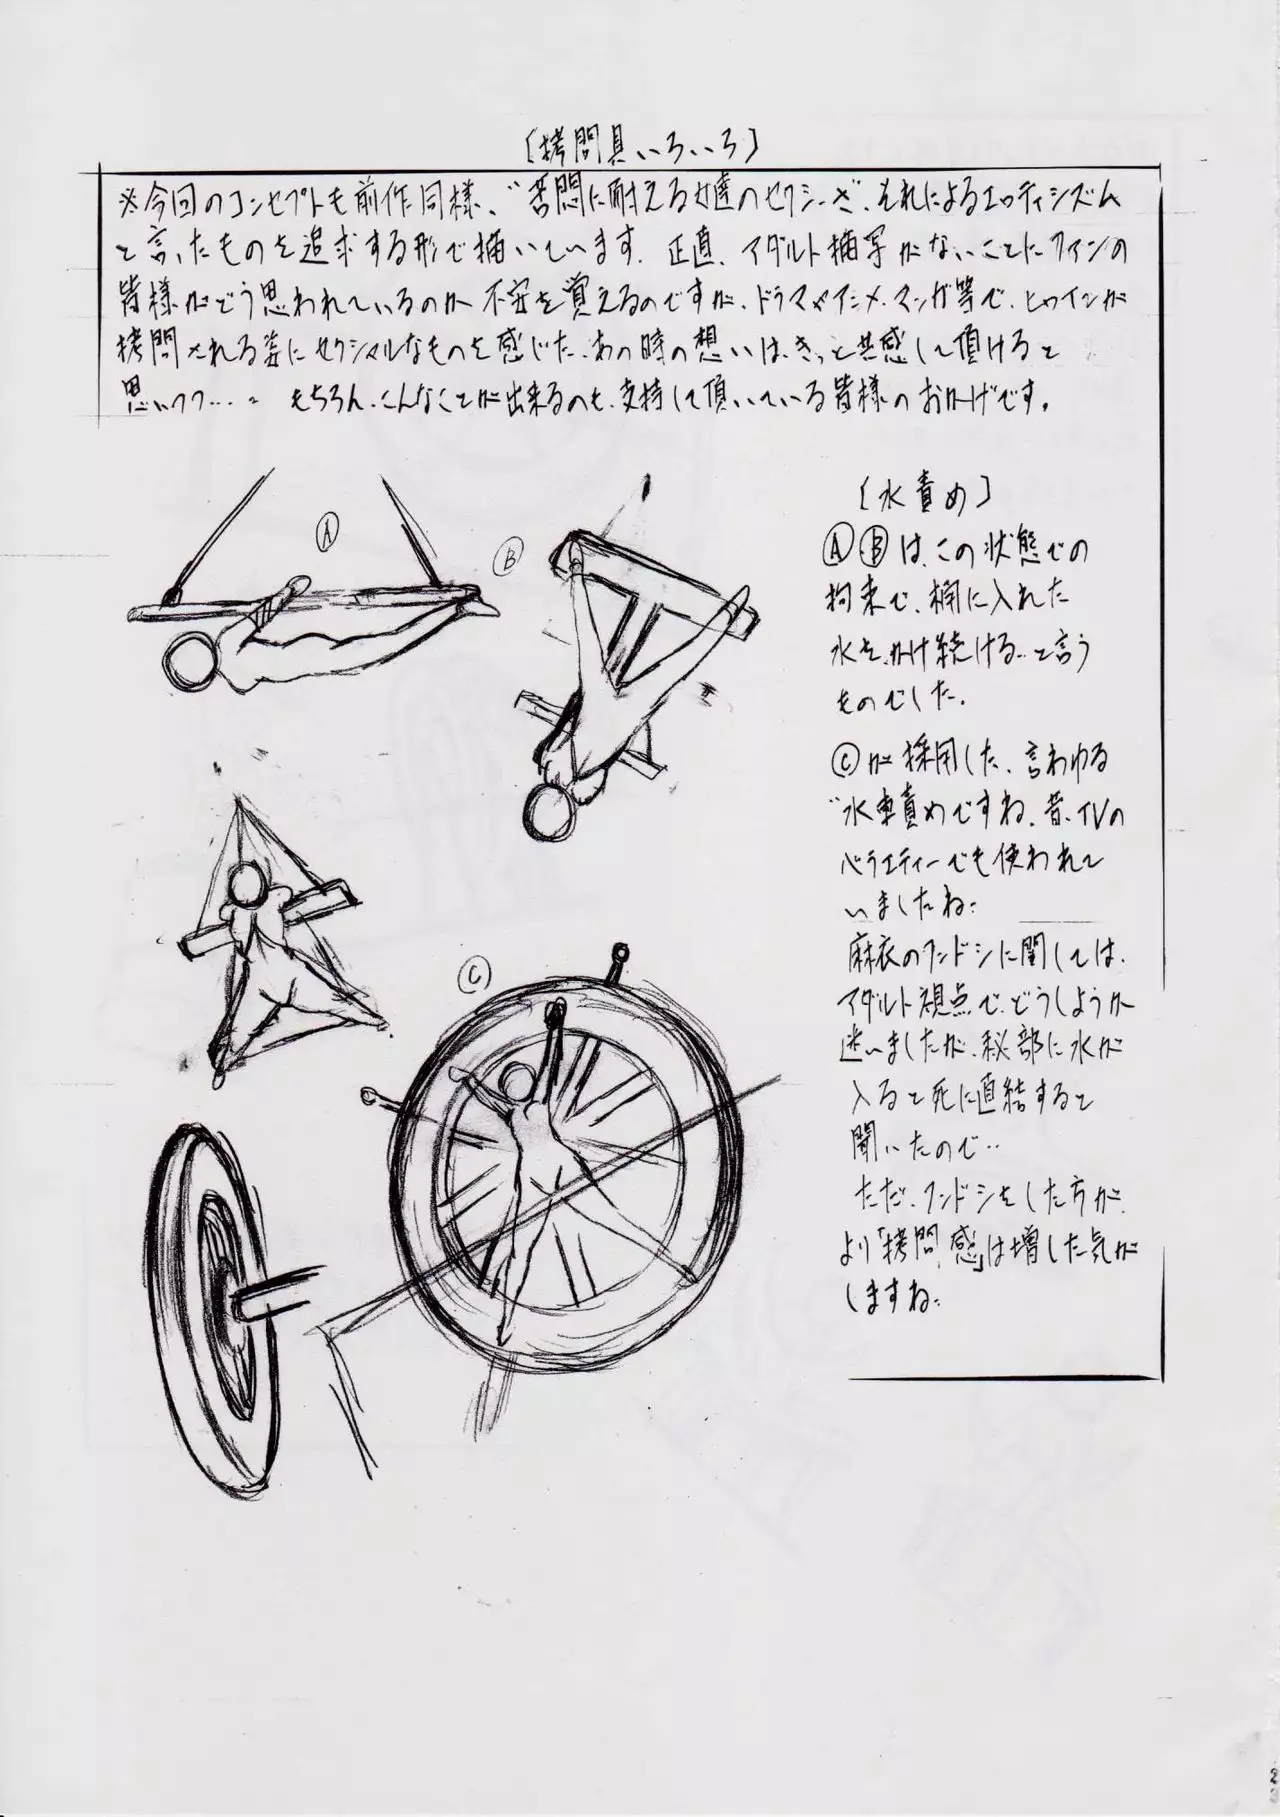 〔拷問具いろいろ〕
※今回のコンセプトも前作同様、"苦悶に耐える女達のセクシーさ、それによるエロティシズム
と言ったものを追求する形で描いています。正直、アダルト描写がないことにファンの
皆様がどう思われているのか不安を覚えるのですが、ドラマやアニメ、マンガ等で、ヒロインが
拷問される姿にセクシャルなものを感じた、あの時の想いは、きっと共感して頂けると
思いつつ…。もちろん、こんなことが出来るのも、支持して頂いている皆様のおかげです。
Ⓐ
Ⓑ
Ⓒ
〔水責め〕
ⒶⒷは、この状態での
拘束で、桶に入れた
水を、かけ続ける…と言う
ものでした。
Ⓒが採用した、言わゆる
"水車責めですね。昔、TVの
バラエティーでも使われて
いましたね…
麻衣のフンドシに関しては、
アダルト視点で、どうしようか
迷いましたが、秘部に水が
入ると死に直結すると
聞いたので…
ただ、フンドシをした方が、
より「拷問感」は増した気が
しますね…